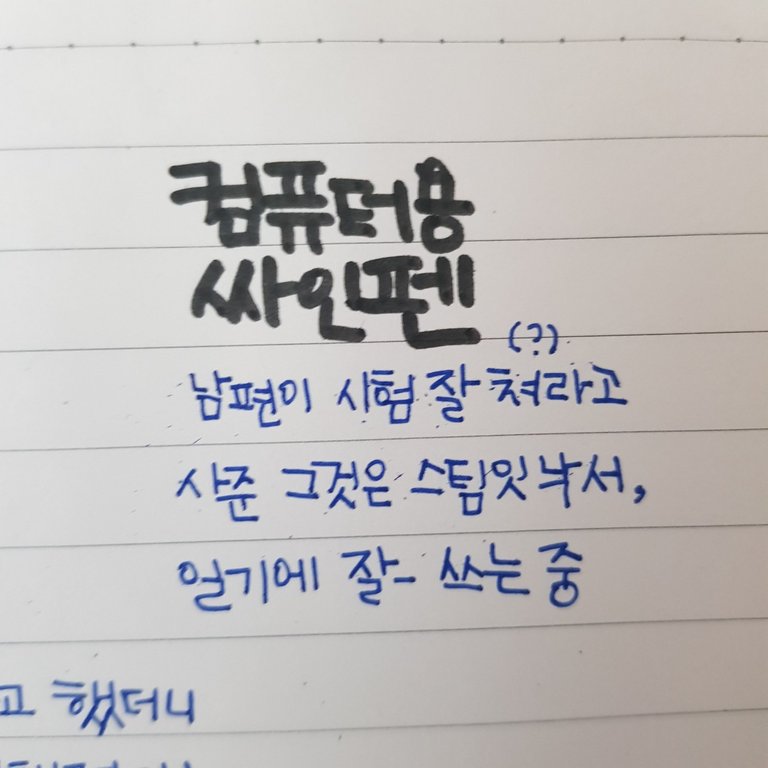 컴퓨터용
싸인펜
(?)
남편이 시험 잘 쳐라고
사준 그것은 스팀잇 낙서,
일기에 잘- 쓰는 중
고 했더니